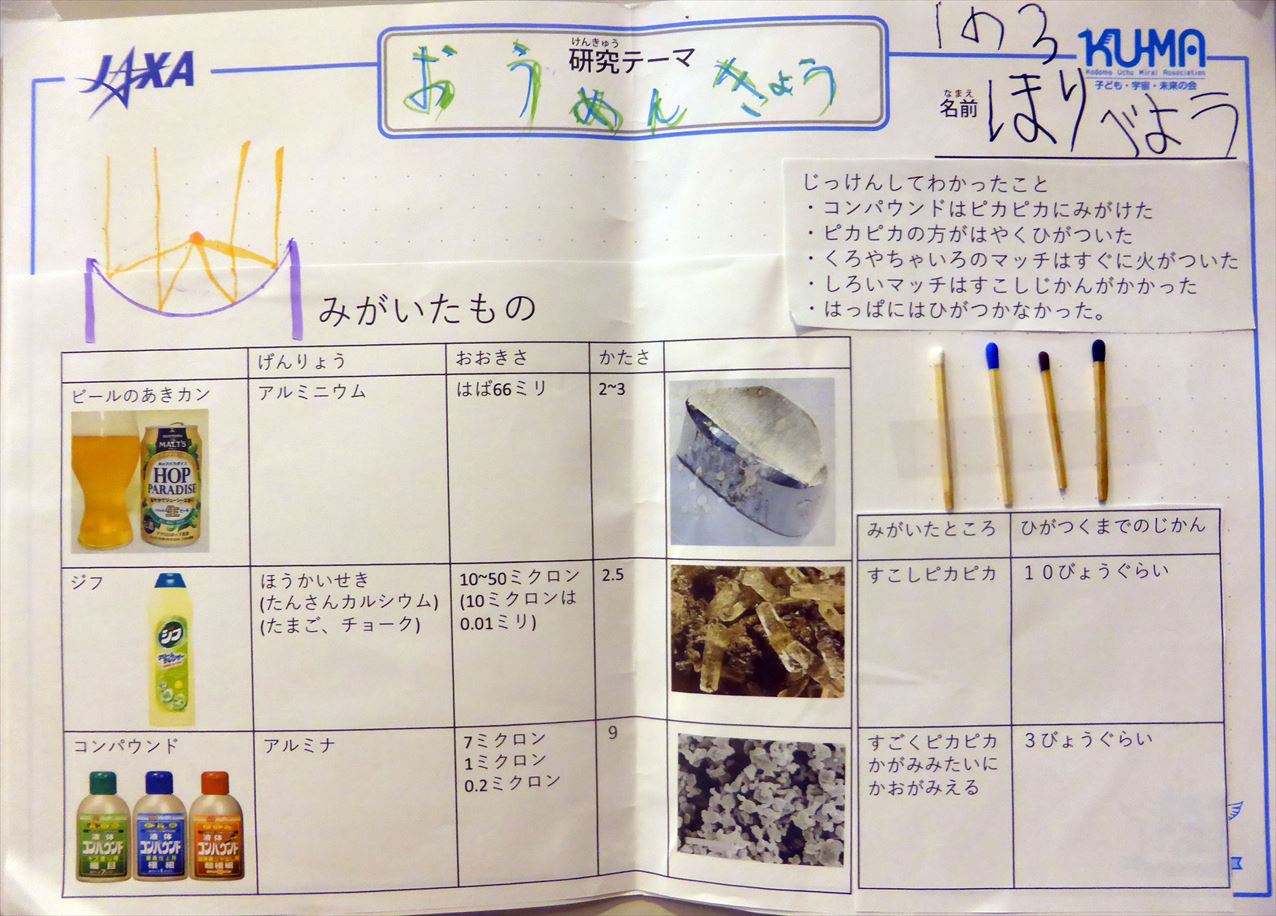 JAXA
けんきゅう
研究テーマ
おうめんきょう
KUMA
Kodomo Uchu Mirai Association
子ども・宇宙・未来の会
なまえ
名前 ほりべよう
じっけんしてわかったこと
・コンパウンドはピカピカにみがけた
・ピカピカの方がはやくひがついた
・くろやちゃいろのマッチはすぐに火がついた
・しろいマッチはすこしじかんがかかった
・はっぱにはひがつかなかった。
みがいたもの
げんりょう おおきさ かたさ
ビールのあきカン アルミニウム はば66ミリ 2~3
MALT'S
HOP
PARADISE
ジフ ほうかいせき 10~50ミクロン 2.5
(たんさんカルシウム) (10ミクロンは
(たまご、チョーク) 0.01ミリ)
ジフ
コンパウンド アルミナ 7ミクロン 9
1ミクロン
0.2ミクロン
液体 液体 液体
コンパウンド コンパウンド コンパウンド
細目 極細 超極細
みがいたところ ひがつくまでのじかん
すこしピカピカ 10びょうぐらい
すごくピカピカ 3びょうぐらい
かがみみたいに
かおがみえる